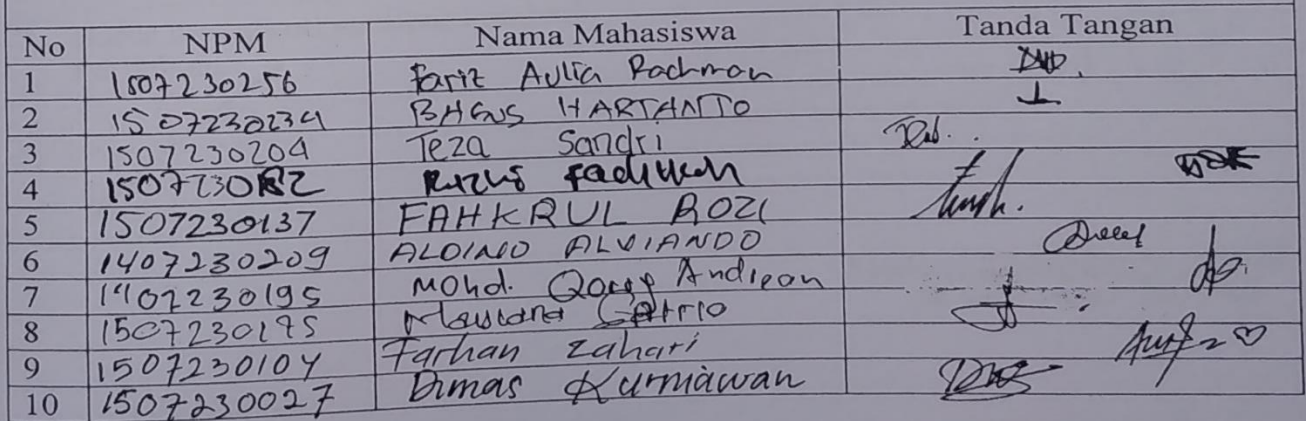 No NPM Nama Mahasiswa Tanda Tangan
1 1507230256 Fariz Aulia Rachman
2 1507230234 BAGUS HARTANTO
3 1507230204 Teza Sandri
4 Rizki Fadillah
5 1507230137 FAHKRUL ROZI
6 1407230209 ALDINO ALVIANDO
7 1407230195 Mohd. Andrean
8 1507230175 Maulana Satrio
9 1507230104 Farhan Zahari
10 1507230027 Dimas Kurniawan